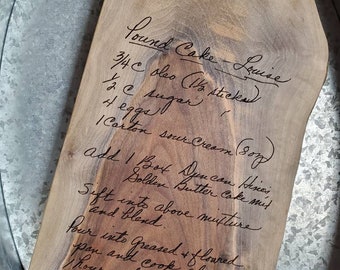 Pound Cake - Louise
3/4 C oleo (1½ sticks)
1/2 C sugar "
4 eggs
1 Carton sour cream (8oz)
add 1 Box Duncan Hines
Golden Butter cake mix
Sift into above mixture
and blend
Pour into Greased & floured
pan and cook
1 hour